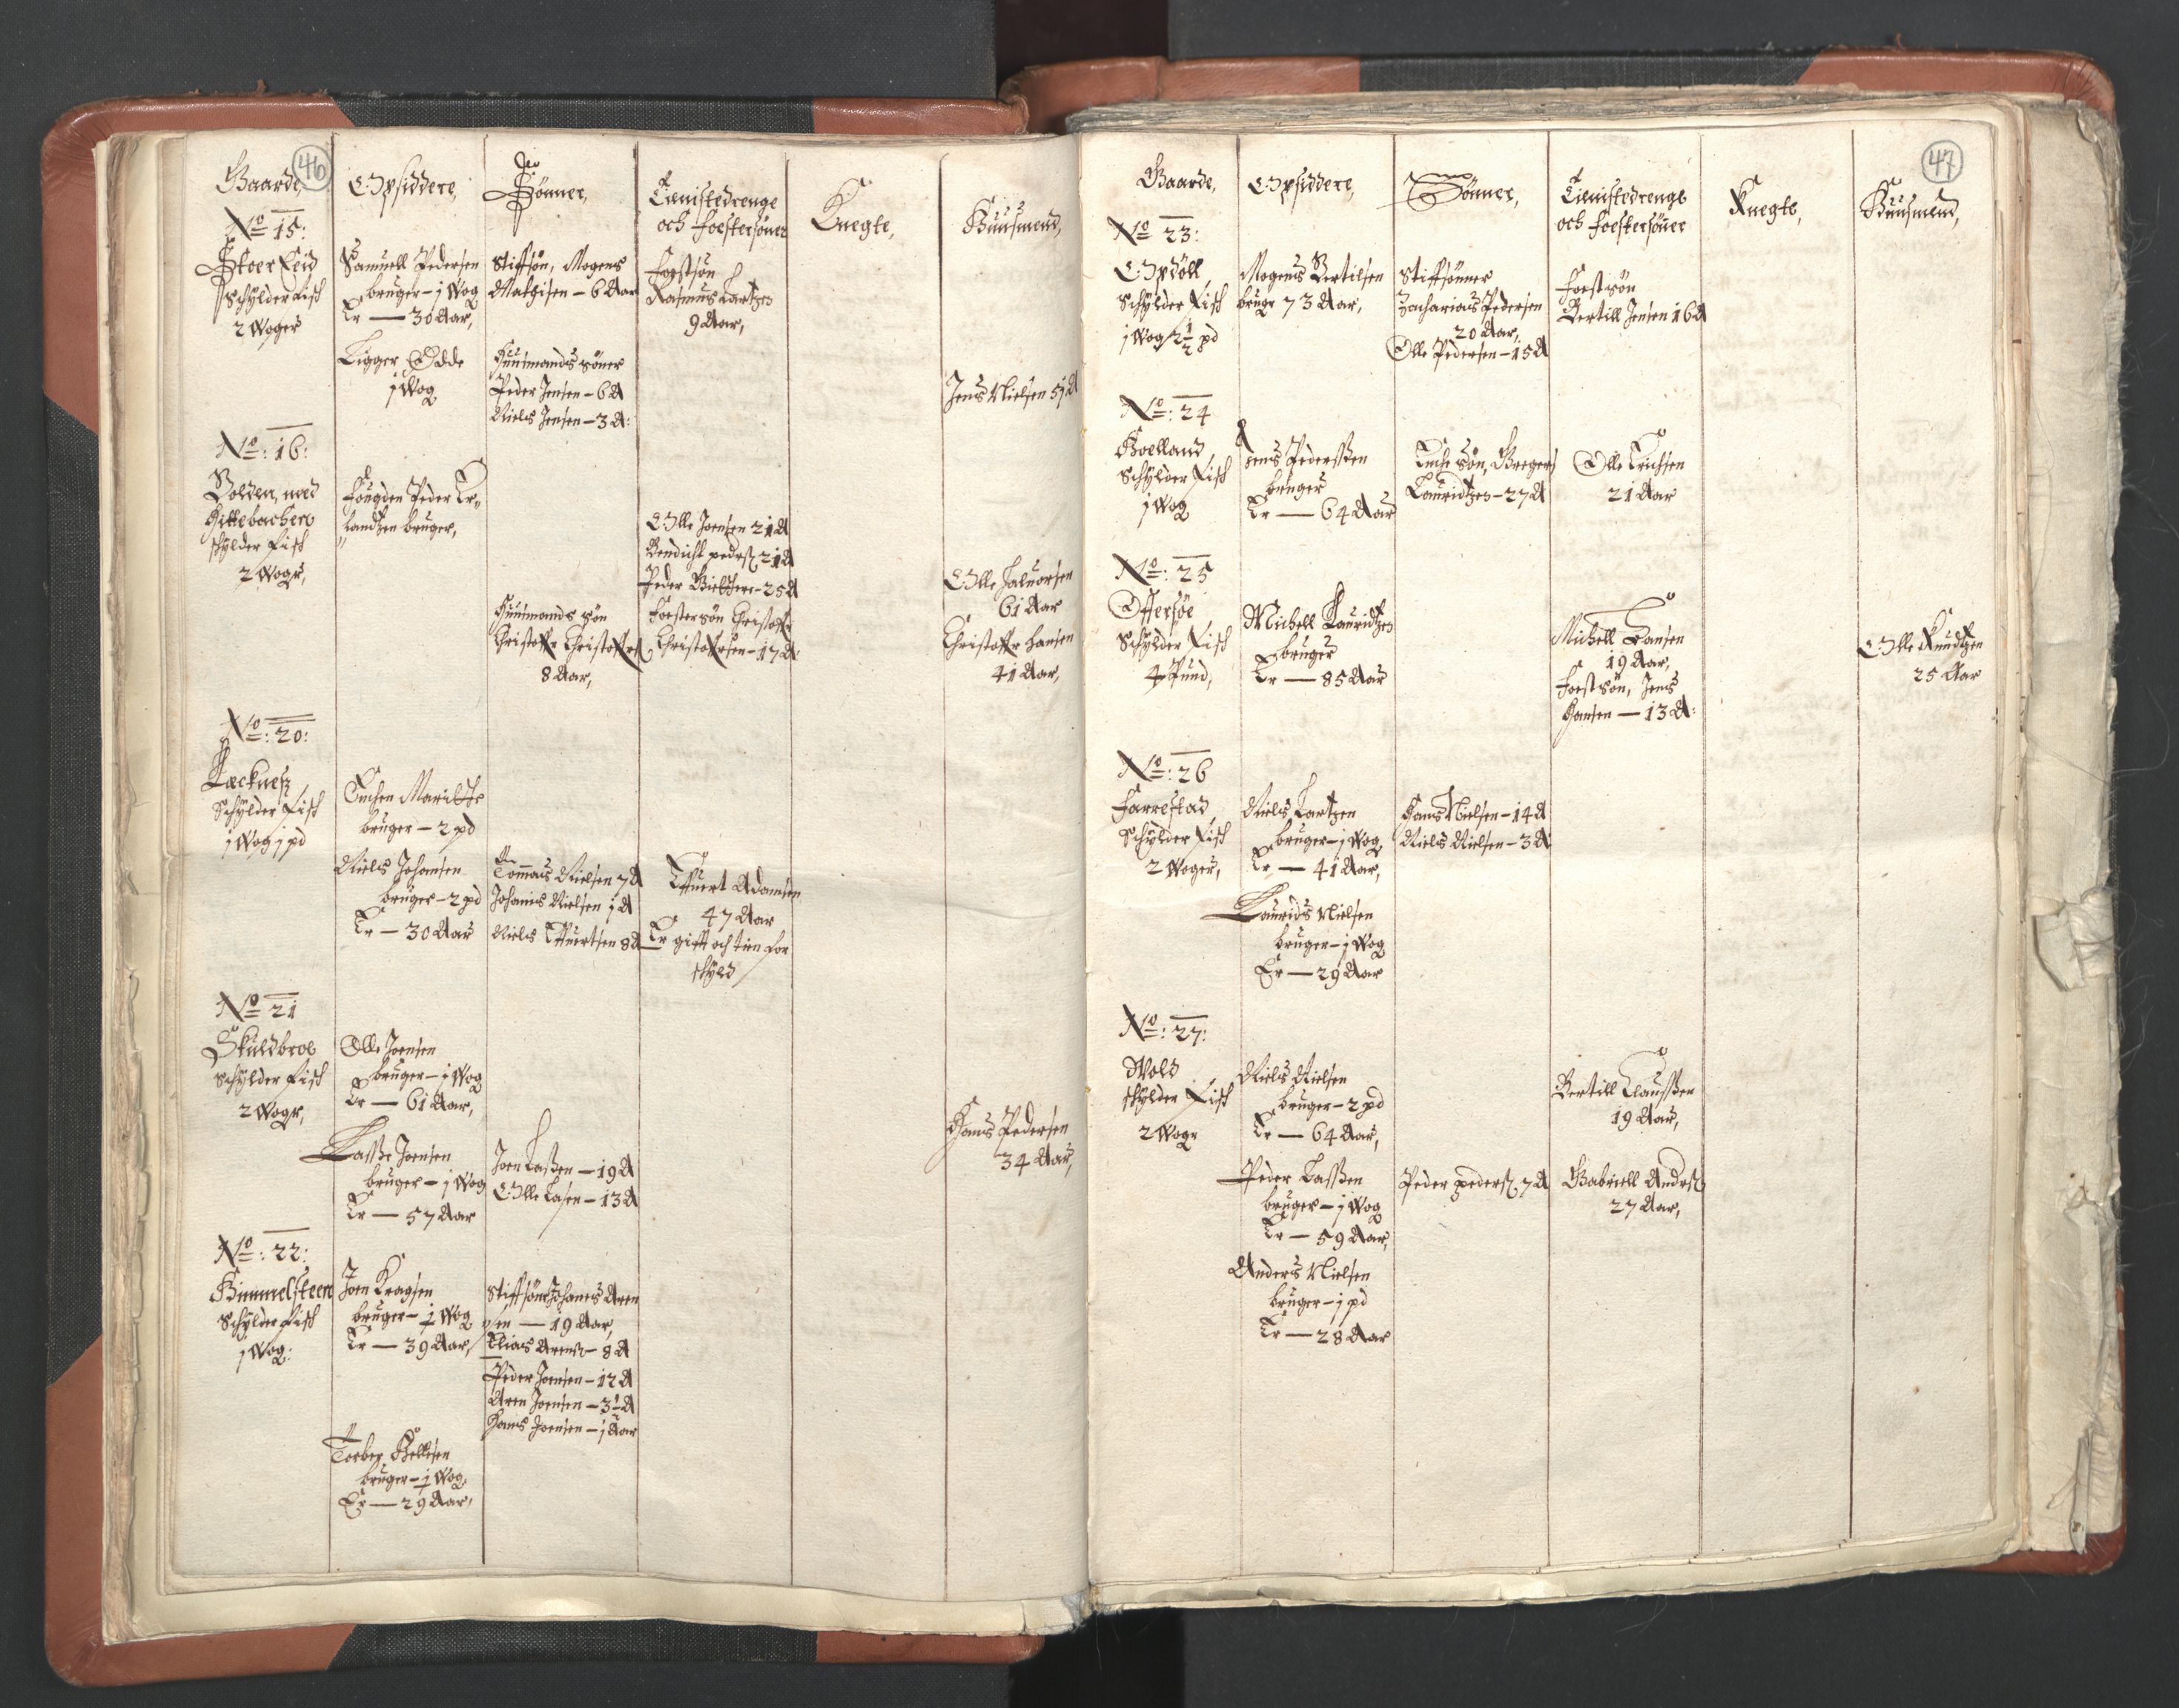 46
Gaarde,
Opsiddere,
Sönner,
Tienistedrenge
och fosstersöner
Knegte,
Huusmend,
No 15:
Stoer Eid
Schylder Fisch
2 Woger
Samuell Pedersen
bruger - 1 Wog
Er - 30 Aar,
Stiffsön, Mogens
Mathisen - 6 Aar
fosstsön
Rasmus Lartzen
9 Aar,
Ligger Ödde
1 Wog
Huusmands söner
Peder Jensen - 6 A
Niels Jensen - 3 A:
Jens Nielsen 51 A
No: 16:
Bolden, med
schylder Fisch
2 Wogr,
Fougden Peder Er-
landzen bruger,
Olle Joensen 21 A
Bendicht peders: 21 A
Peder - 25 A
Fostersön Christoffer
Christoffersen - 17 A:
Huusmands sön
Christoffer Christoffers:
8 Aar,
Olle Haluorsen
61 Aar
Christoffer Hansen
41 Aar,
No: 20:
Læcknesz
Schylder Fisch
1 Wog 1 pd
Enchen Maritte
bruger - 2 pd
Niels Johansen
bruger - 2 pd
Er - 30 Aar
Tommas Nielsen 7 A
Johanis Nielsen 1 A
Niels Effuertsen 8 A
Effuert Adamsen
47 Aar
Er gifft och tien for
schyld
No 21
Skuldbroe
Schylder Fisch
2 Wogr,
Olle Joensen
bruger - 1 Wog
Er - 61 Aar,
Lasse Joensen
bruger - 1 Wog
Er - 57 Aar
Joen Lassen - 19 A
Olle Lasen - 13 A
Hans Pedersen
34 Aar,
No: 22:
Himmelsteen
Schylder Fisch
1 Wog:
Joen Kragsen
bruger - ½ Wog
Er - 39 Aar,
Stiffsöner Johanes Aren
sen - 19 Aar,
Elias Arens: - 8 A
Peder Joensen - 12 A
Aren Joensen - 3½ A
Hans Joensen - 1 Aar
Torber Helliesen
bruger - ½ Wog,
Er - 29 Aar,
47
Gaarde,
Opsiddere,
Sönner,
Tienistedrenge
och fosstersöner
Knegte,
Huusmend,
No 23:
Opdöll
Schylder Fisch
1 Wog 2½ pd
Mogens Bertilsen
bruger 73 Aar,
Stiffsönner
Zacharias Pedersen
20 Aar,
Olle Pedersen - 15 A
Fosstsön
Bertill Jensen 16 A
No: 24
Holland
Schylder Fisch
1 Wog
Jens Pederssen
bruger
Er - 64 Aar
Enche sön, Gregers
Lauridtzen - 27 A
Olle Erichsen
21 Aar
No: 25
Offersöe
Schylder Fisch
4 Pund,
Michell Lauridtzen
bruger
Er - 85 Aar
Michell Hansen
19 Aar,
Fosstsön, Jens
Hansen - 13 A:
Olle Knudtzen
25 Aar
No: 26
Farrestad
Schylder Fisch
2 Woger,
Niels Lartzen
bruger - 1 Wog
Er - 41 Aar,
Hans Nielsen - 14 A
Niels Nielsen - 3 A
Laurids Nielsen
bruger - 1 Wog
Er - 29 Aar
No: 27:
Wold
schylder Fisch
2 Wogr
Niels Nielsen
bruger - 2 pd
Er - 64 Aar,
Bertill Claussen
19 Aar,
Peder Lassen
bruger - 1 Wog
Er - 59 Aar,
Peder peders: 7 A
Gabriell Anders:
27 Aar,
Anders Nielsen
bruger - 1 pd
Er - 28 Aar